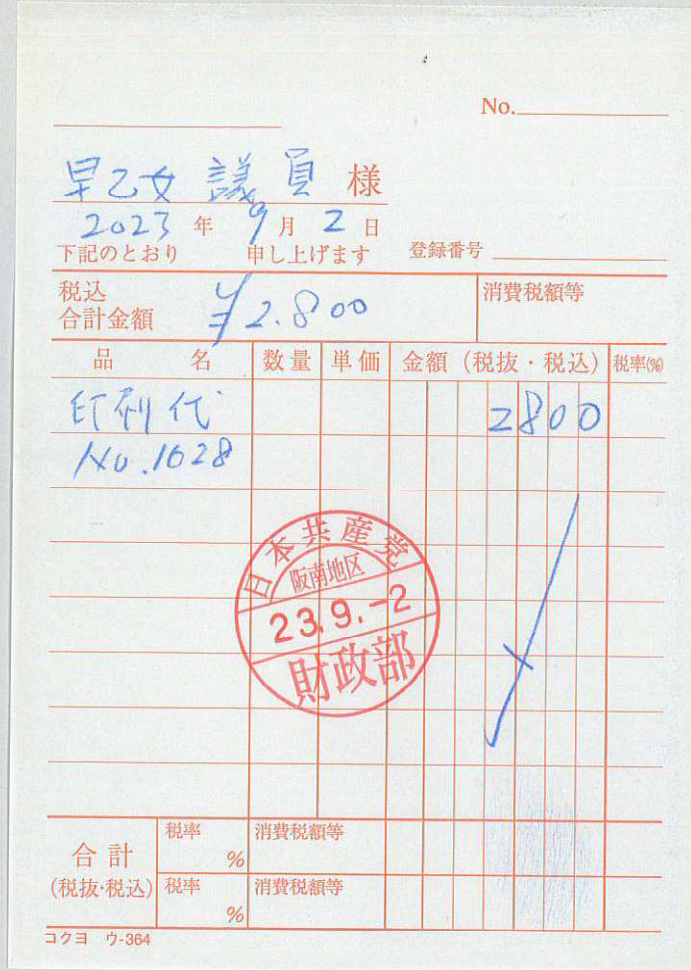 No.
早乙女 議員 様
2023 年 9 月 2 日
下記のとおり 申し上げます 登録番号
税込
合計金額 ¥2.800 消費税額等
品 名 数量 単価 金額 (税抜・税込) 税率(%)
印刷代 2800
No.1028
日本共産党
阪南地区
23.9.-2
財政部
合計
(税抜・税込)
税率 % 消費税額等
税率 % 消費税額等
コクヨ ウ-364